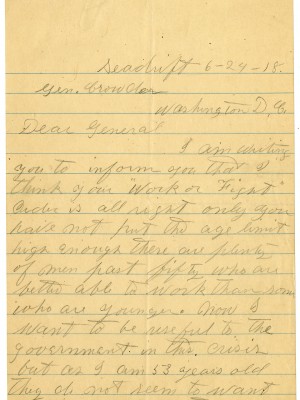 Seadrift 6-24-18.
Gen. Crowder
Washington D. C.
Dear General
I am writing
you to inform you that I
think your "Work or Fight"
order is all right only you
have not put the age limit
high enough there are plenty
of men past fifty who are
better able to work than some
who are younger. Now I
want to be useful to the
government in this crisis
but as I am 53 years old
they do not seem to want